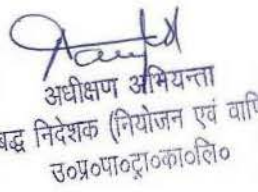 अधीक्षण अभियन्ता
बद्ध निदेशक (नियोजन एवं
उ०प्र०पा०ट्रा०का०लि०